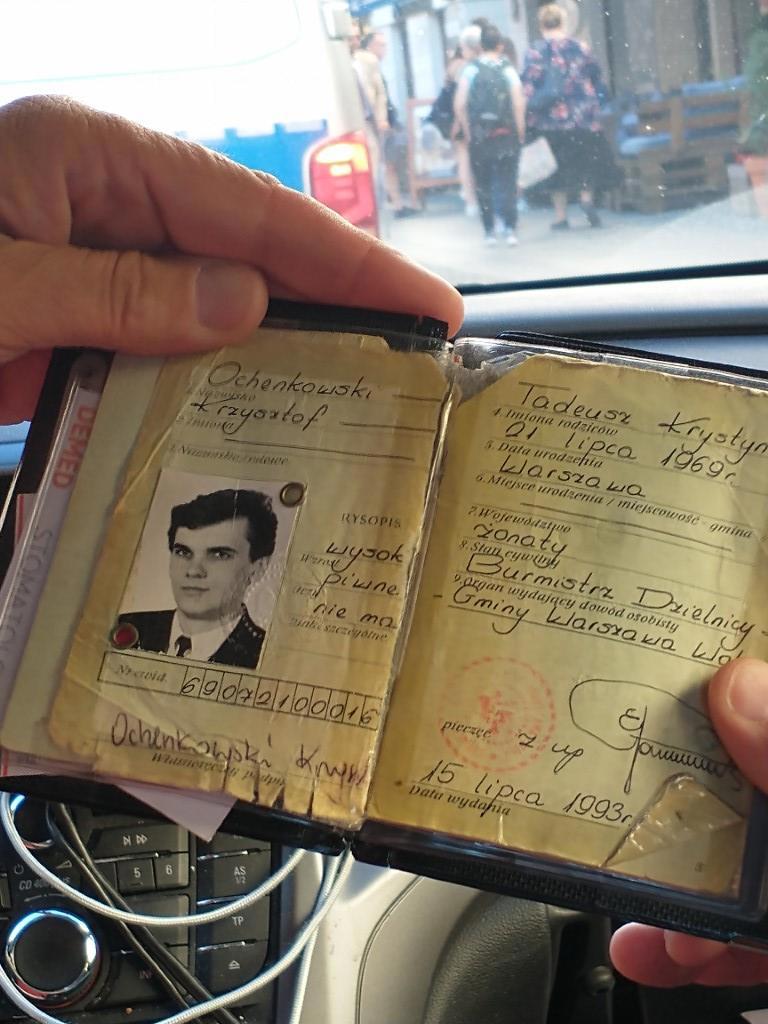 Ochenkowski
1. Nazwisko
Krzysztof
2. Imiona
3. Nazwisko rodowe
RYSOPIS
wysok
Wzrost
piwne
oczy
nie ma
znaki szczególne
Nr ewid. 69072100016
Ochenkowski Krzys
Własnoręczny podpis
Tadeusz Krystyn
4. Imiona rodziców
21 lipca 1969r.
5. Data urodzenia
Warszawa
6. Miejsce urodzenia / miejscowość - gmina
7. Województwo
żonaty
8. Stan cywilny
Burmistrz Dzielnicy -
9. organ wydający dowód osobisty
- Gminy Warszawa
pieczęć z up
15 lipca 1993r.
Data wydania
DEMED
STOMATOLO
CD 400
5 6
AS
1/2
TP